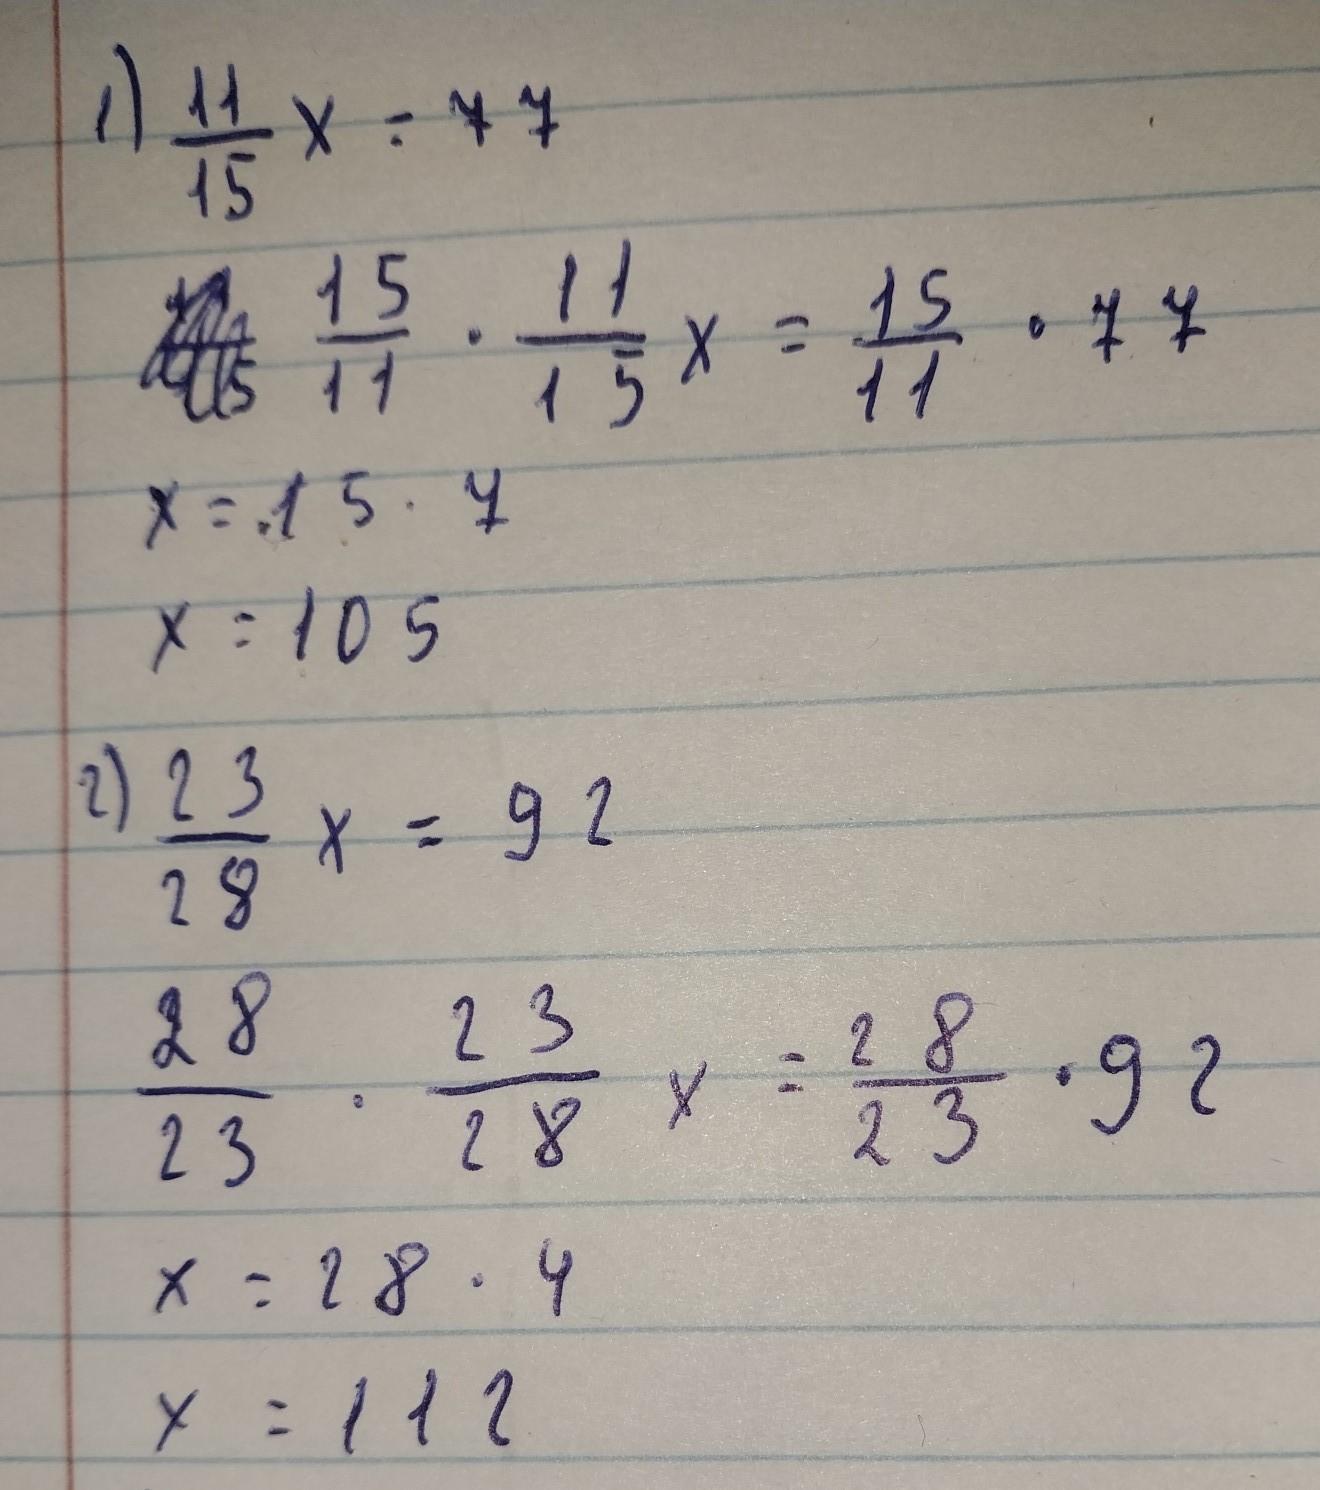 1) 11/15 x = 77
15/11 · 11/15 x = 15/11 · 77
x = 15 · 7
x = 105
2) 23/28 x = 92
28/23 · 23/28 x = 28/23 · 92
x = 28 · 4
x = 112